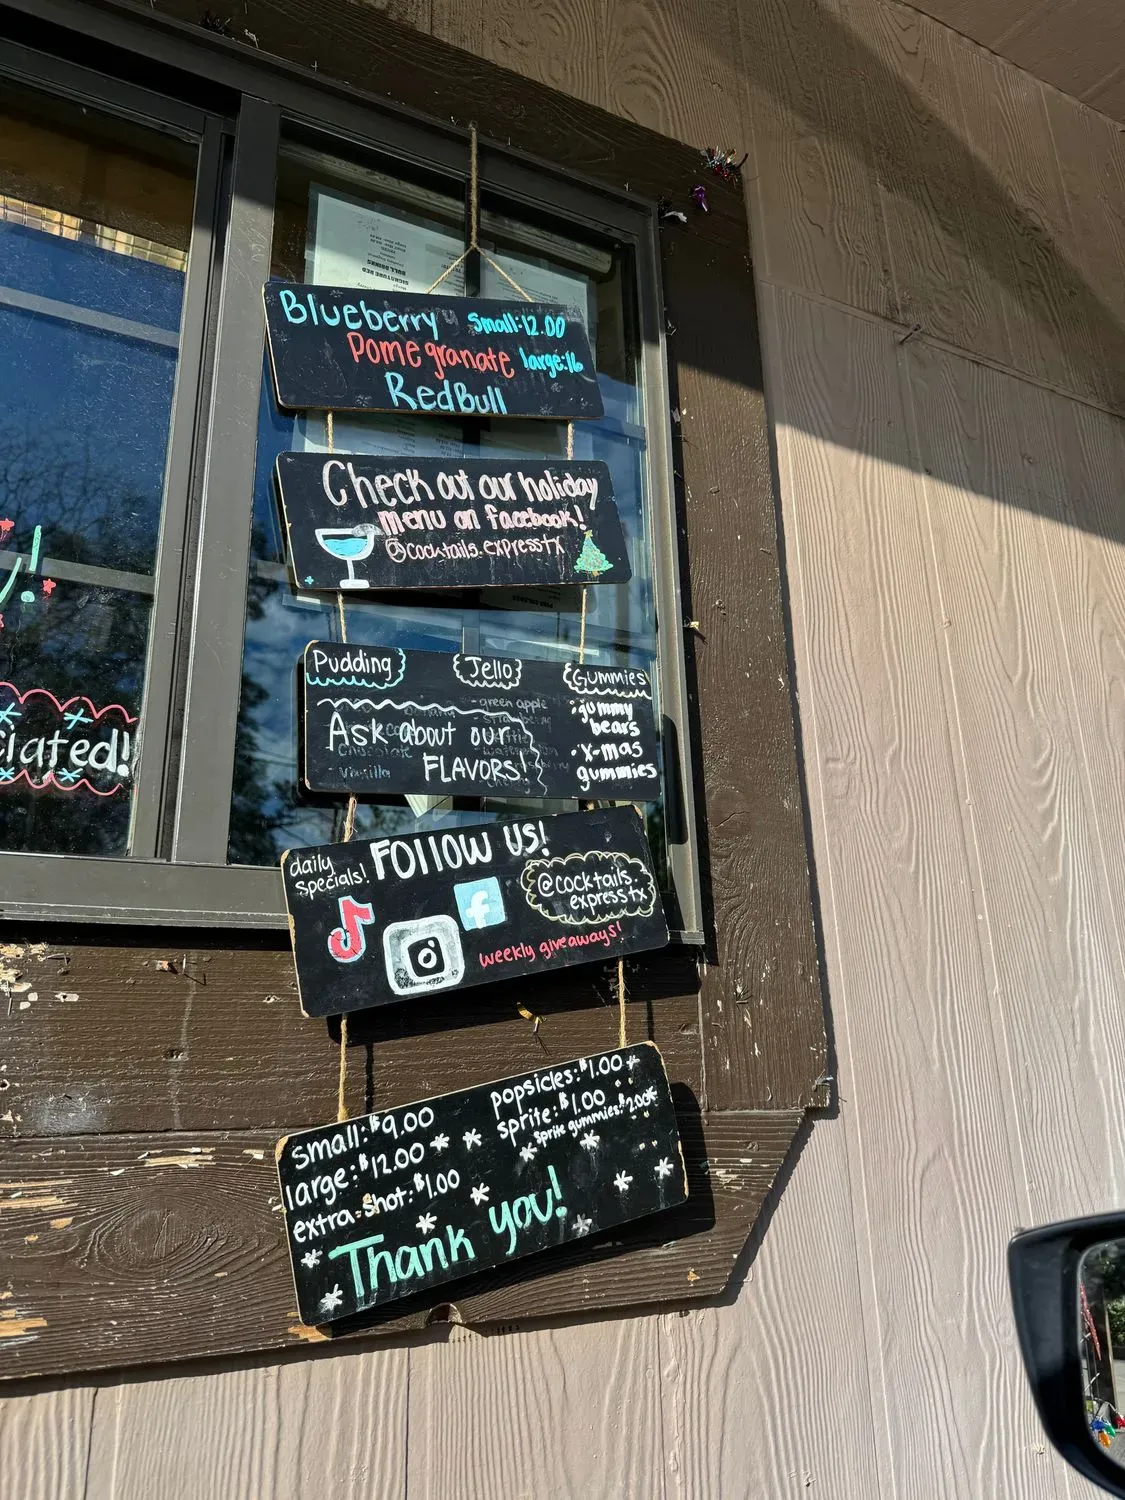 SIGNATURE RED
BULL DRINKS
Blueberry Small: 12.00
Pomegranate large: 16
RedBull
Check out our holiday
menu on facebook!
@cocktails.expresstx
Pudding Jello Gummies
green apple
• gummy
bears
Ask about our
FLAVORS!
vanilla
• x-mas
gummies
daily
specials!
FOLLOW US!
@cocktails.
expresstx
weekly giveaways!
small: $9.00
large: $12.00
extra shot: $1.00
popsicles: $1.00
sprite: $1.00
sprite gummies: $2.00
Thank you!
ciated!